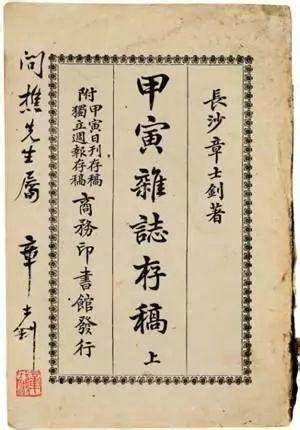 長沙章士釗著
甲寅雜誌存稿 上
附 甲寅日刊存稿
獨立週報存稿
商務印書館發行
問樵先生屬
章士釗